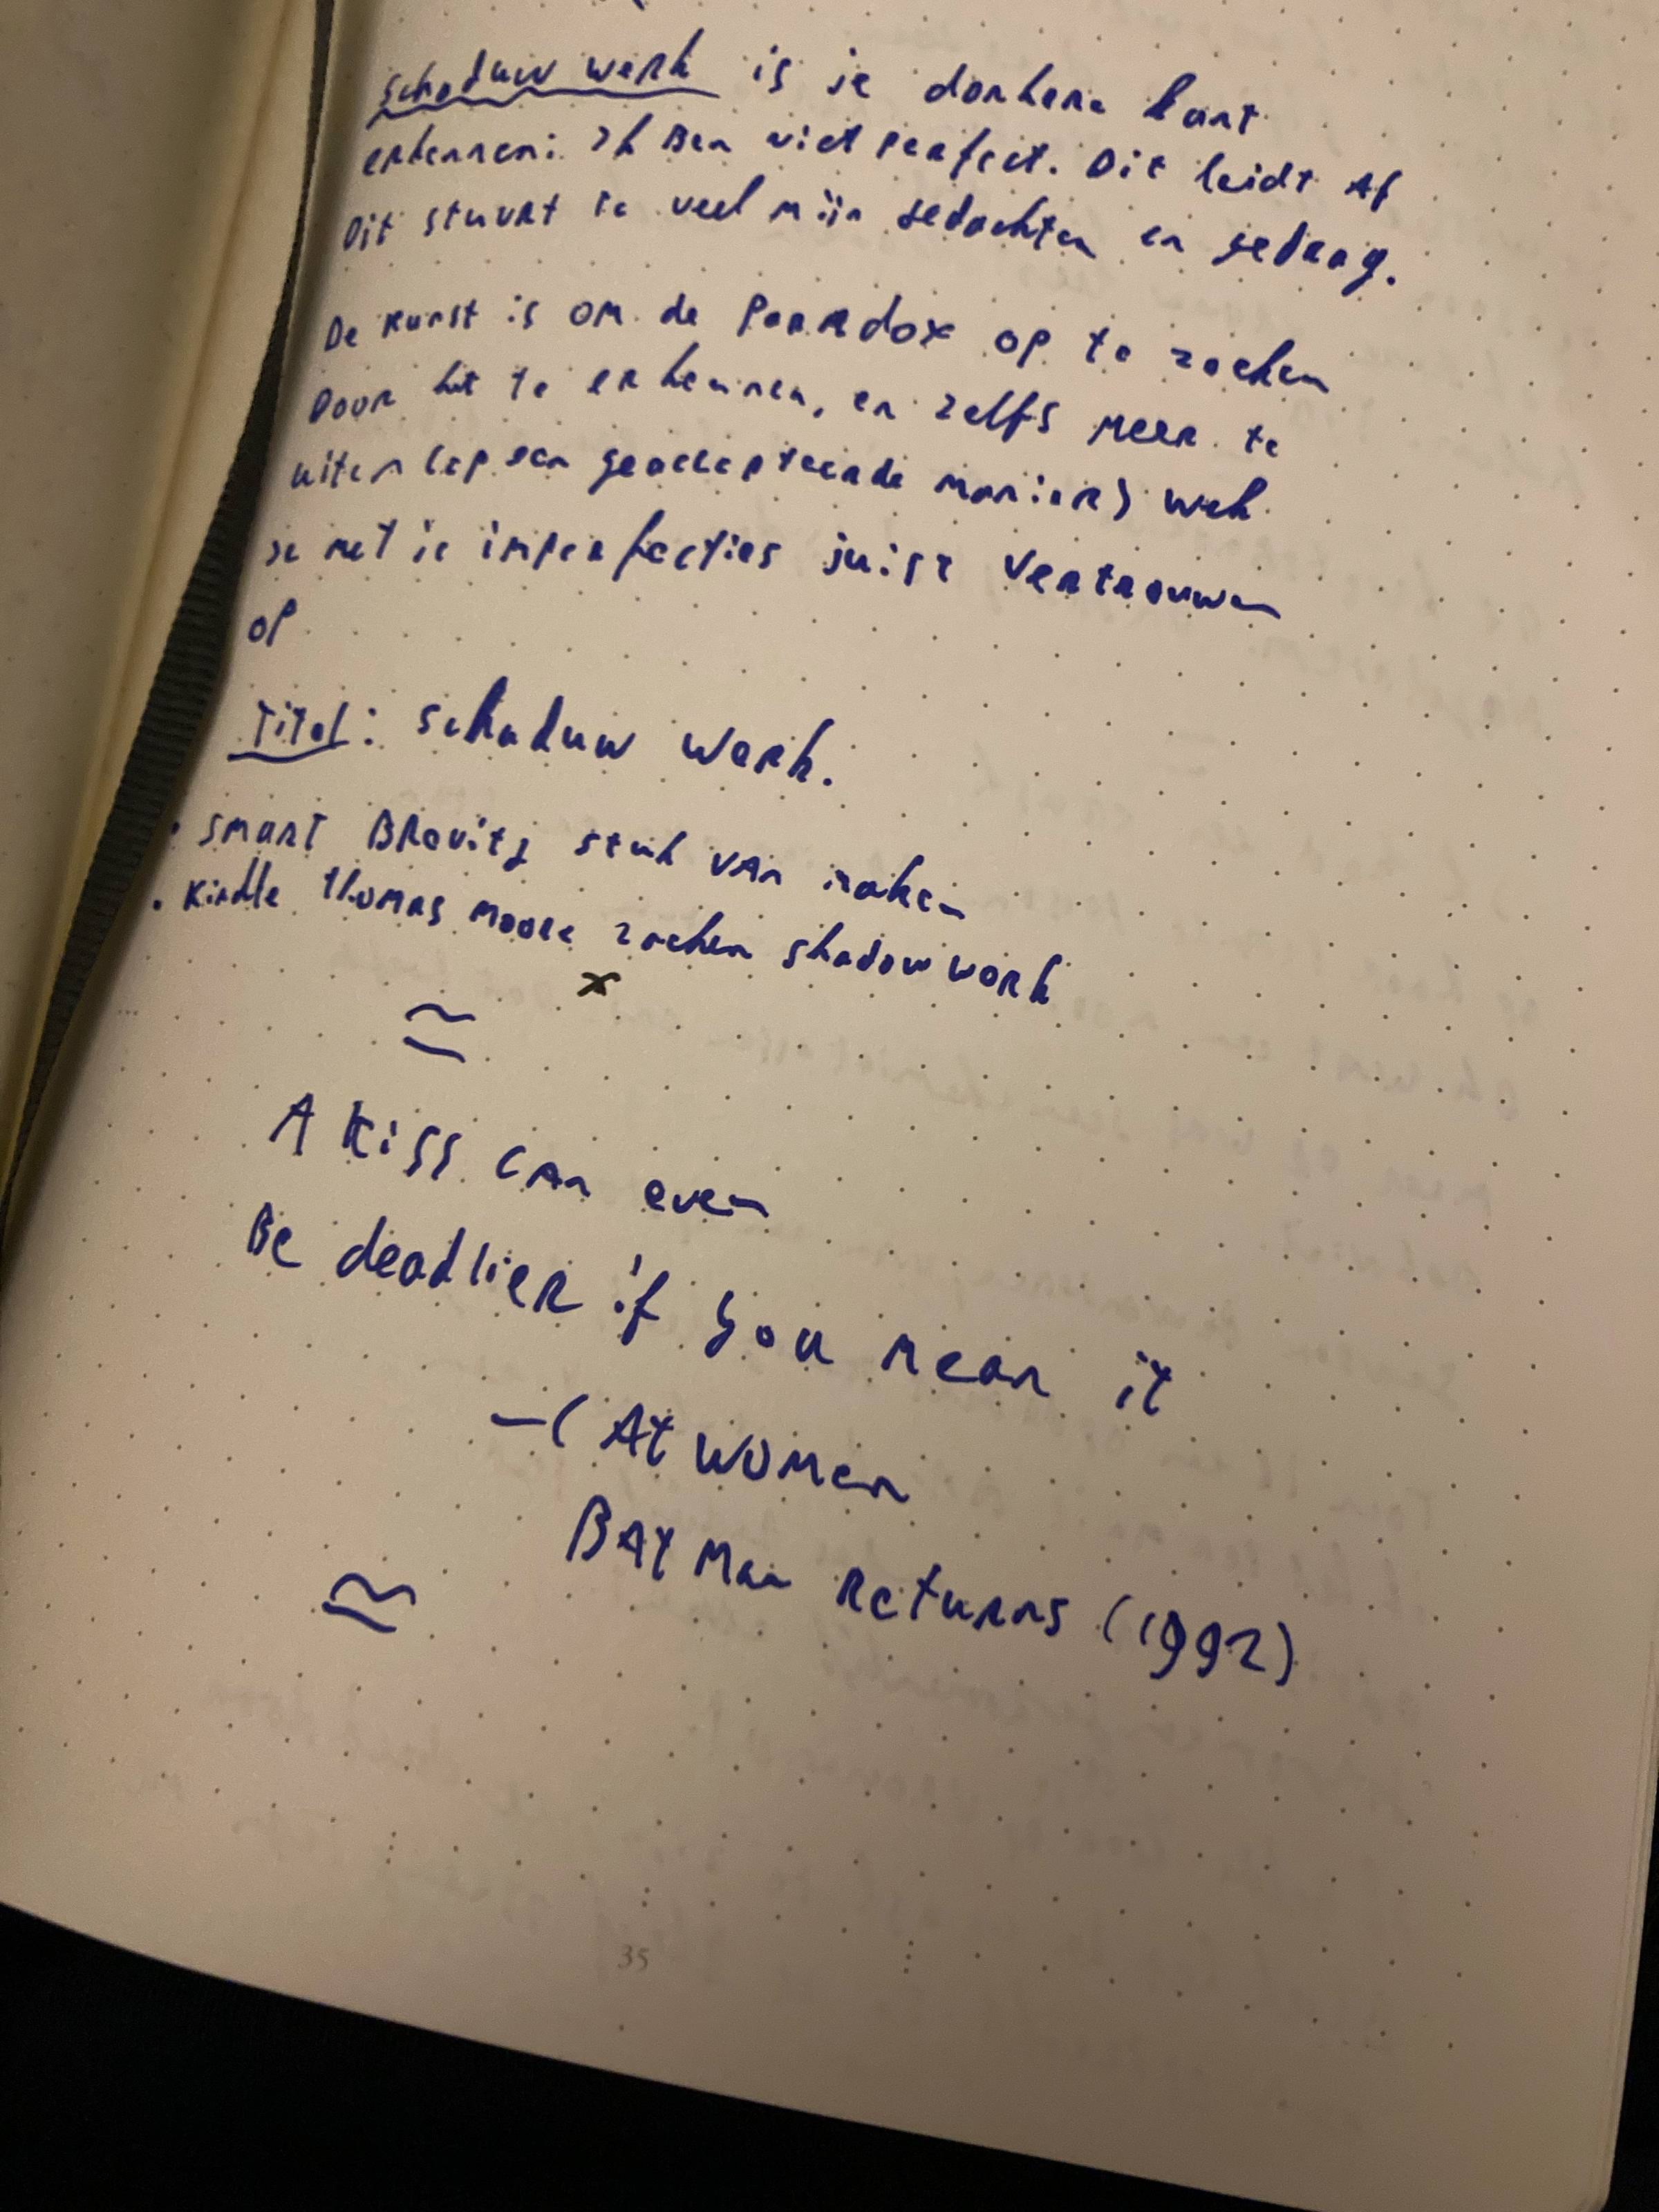 schaduw werk is je donkere kant
erkennen: Ik Ben niet perfect. Dit leidt Af
Dit stuurt te veel mijn gedachten en gedrag.
De kunst is om de Paradox op te zoeken
Door het te erkennen, en zelfs meer te
uiten (op een geaccepteerde manier) wek
je met je imperfecties juist vertrouwen
op
Titel: schaduw werk.
• smart Brevity stuk van maken
• Kindle Thomas Moore zoeken shadow work
x
≃
A kiss can even
Be deadlier if you mean it
— CAt women
BAtman Returns (1992)
≃
35